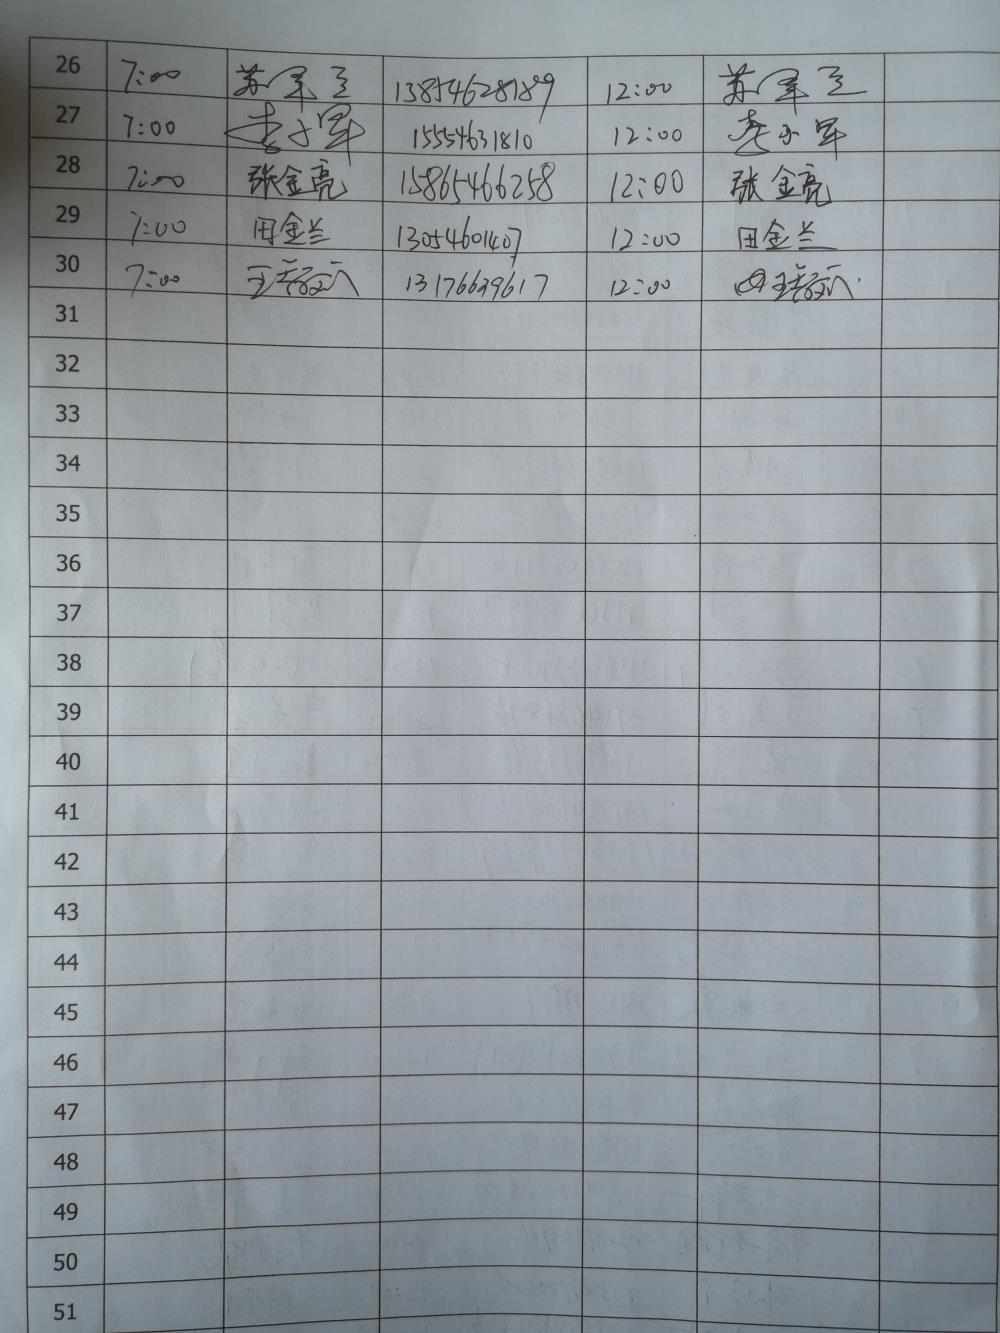 26 7:00 苏军 13854628189 12:00 苏军
27 7:00 李小军 15554631810 12:00 李小军
28 7:00 张金亮 15865466258 12:00 张金亮
29 7:00 田金兰 13054601407 12:00 田金兰
30 7:00 王 13176639617 12:00 王
31
32
33
34
35
36
37
38
39
40
41
42
43
44
45
46
47
48
49
50
51